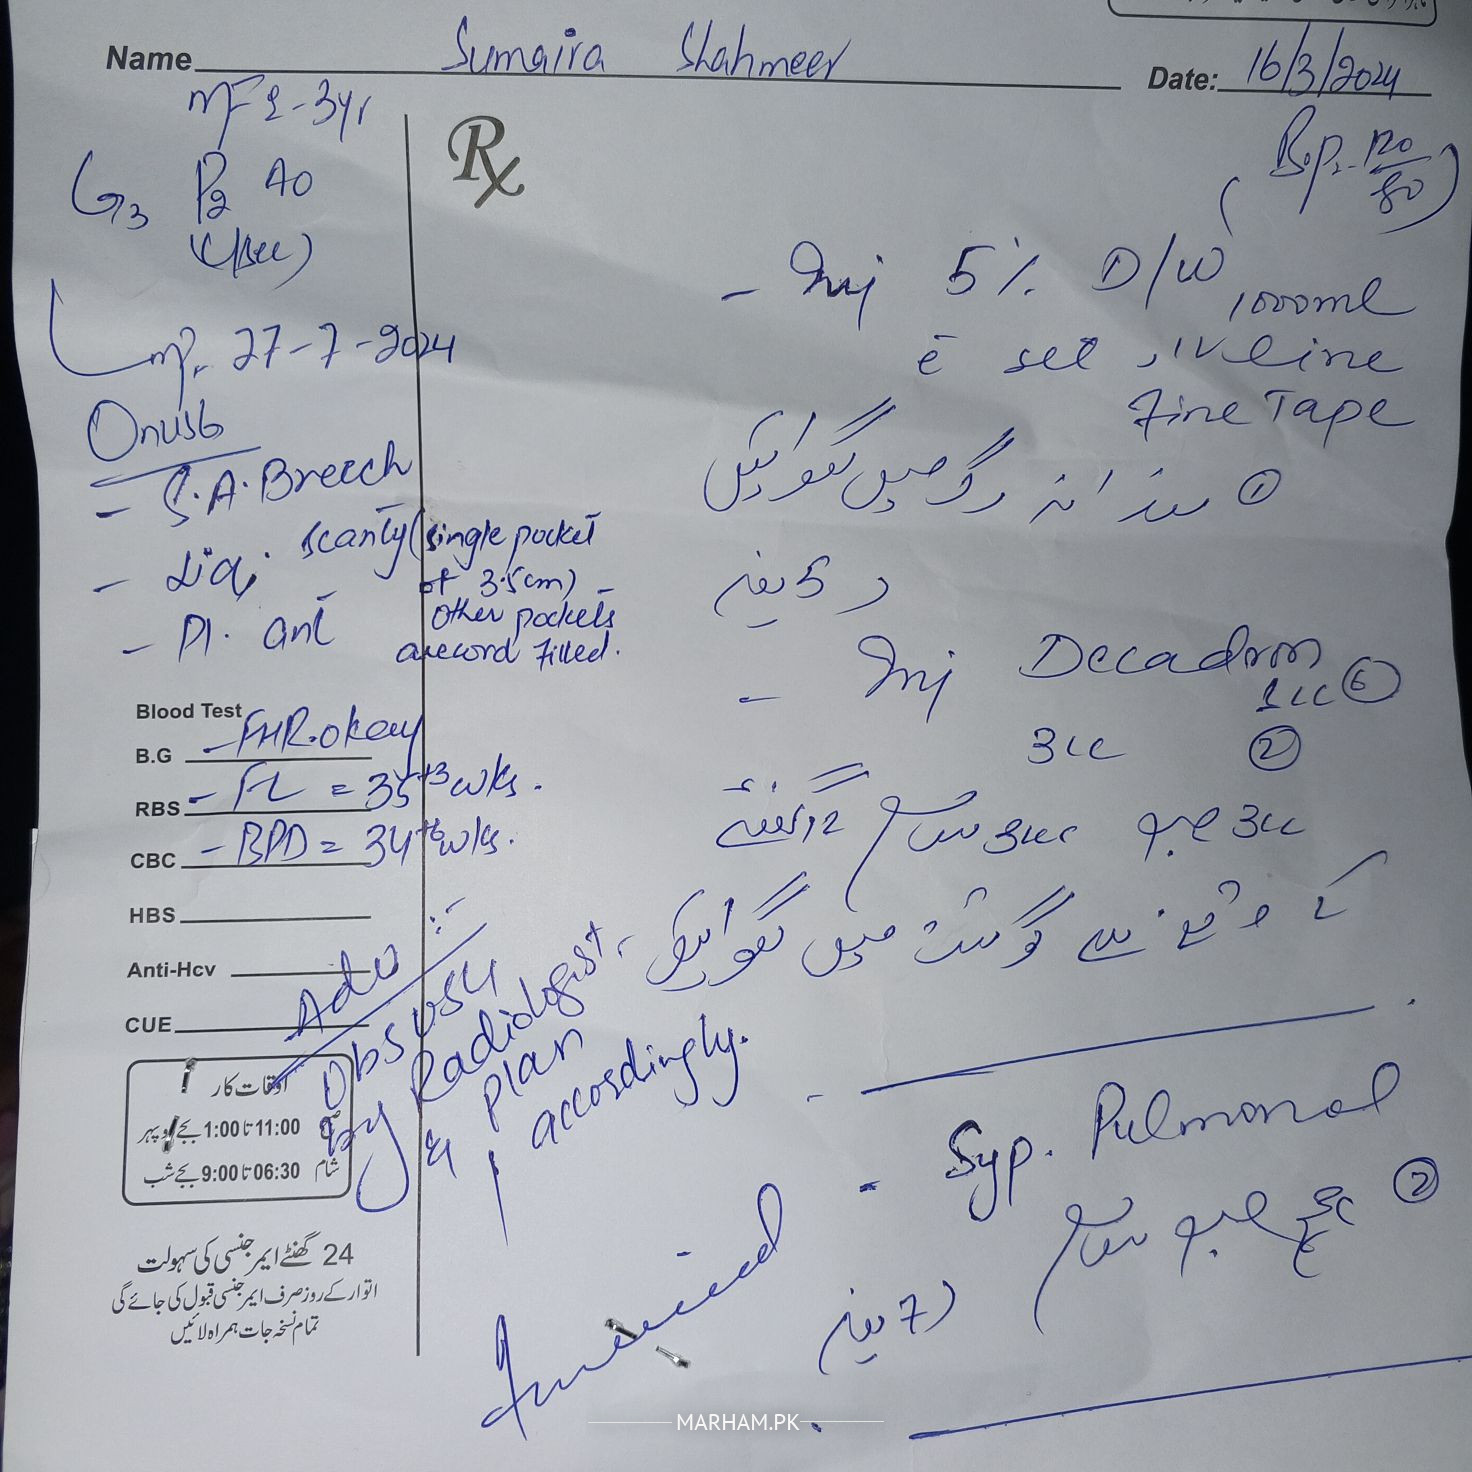 Name Sumaira Shahmeer
Date: 16/3/2024
mF 2-3yr
G3 P2 A0
(c/sec)
27-7-2024
B.P. 120/80
Rx
- Inj 5% D/W 1000ml
c̄ set, IV line
Fine Tape
① روزانہ رگ میں لگوائیں
5 یوم
On USG
- S.A. Breech
- Liq: scanty (single pocket
of 3.5cm)
other pockets
are cord filled.
- Pl. ant
- Inj Decadron
1cc ⑥
3cc ②
3cc صبح 3cc شام 12 گھنٹے
کے وقفے سے گوشت میں لگوائیں
Blood Test
B.G - FHR. okay
RBS - FL = 35+3 wks.
CBC - BPD = 34+6 wks.
HBS
Anti-Hcv
CUE
Adv:-
Obs USG
by Radiologist,
& plan
accordingly.
- Syp. Pulmonol
صبح شام ②
7 یوم
اوقات کار
صبح 11:00 تا 1:00 بجے دوپہر
شام 06:30 تا 9:00 بجے شب
24 گھنٹے ایمرجنسی کی سہولت
اتوار کے روز صرف ایمرجنسی قبول کی جائے گی
تمام نسخہ جات ہمراہ لائیں
MARHAM.PK